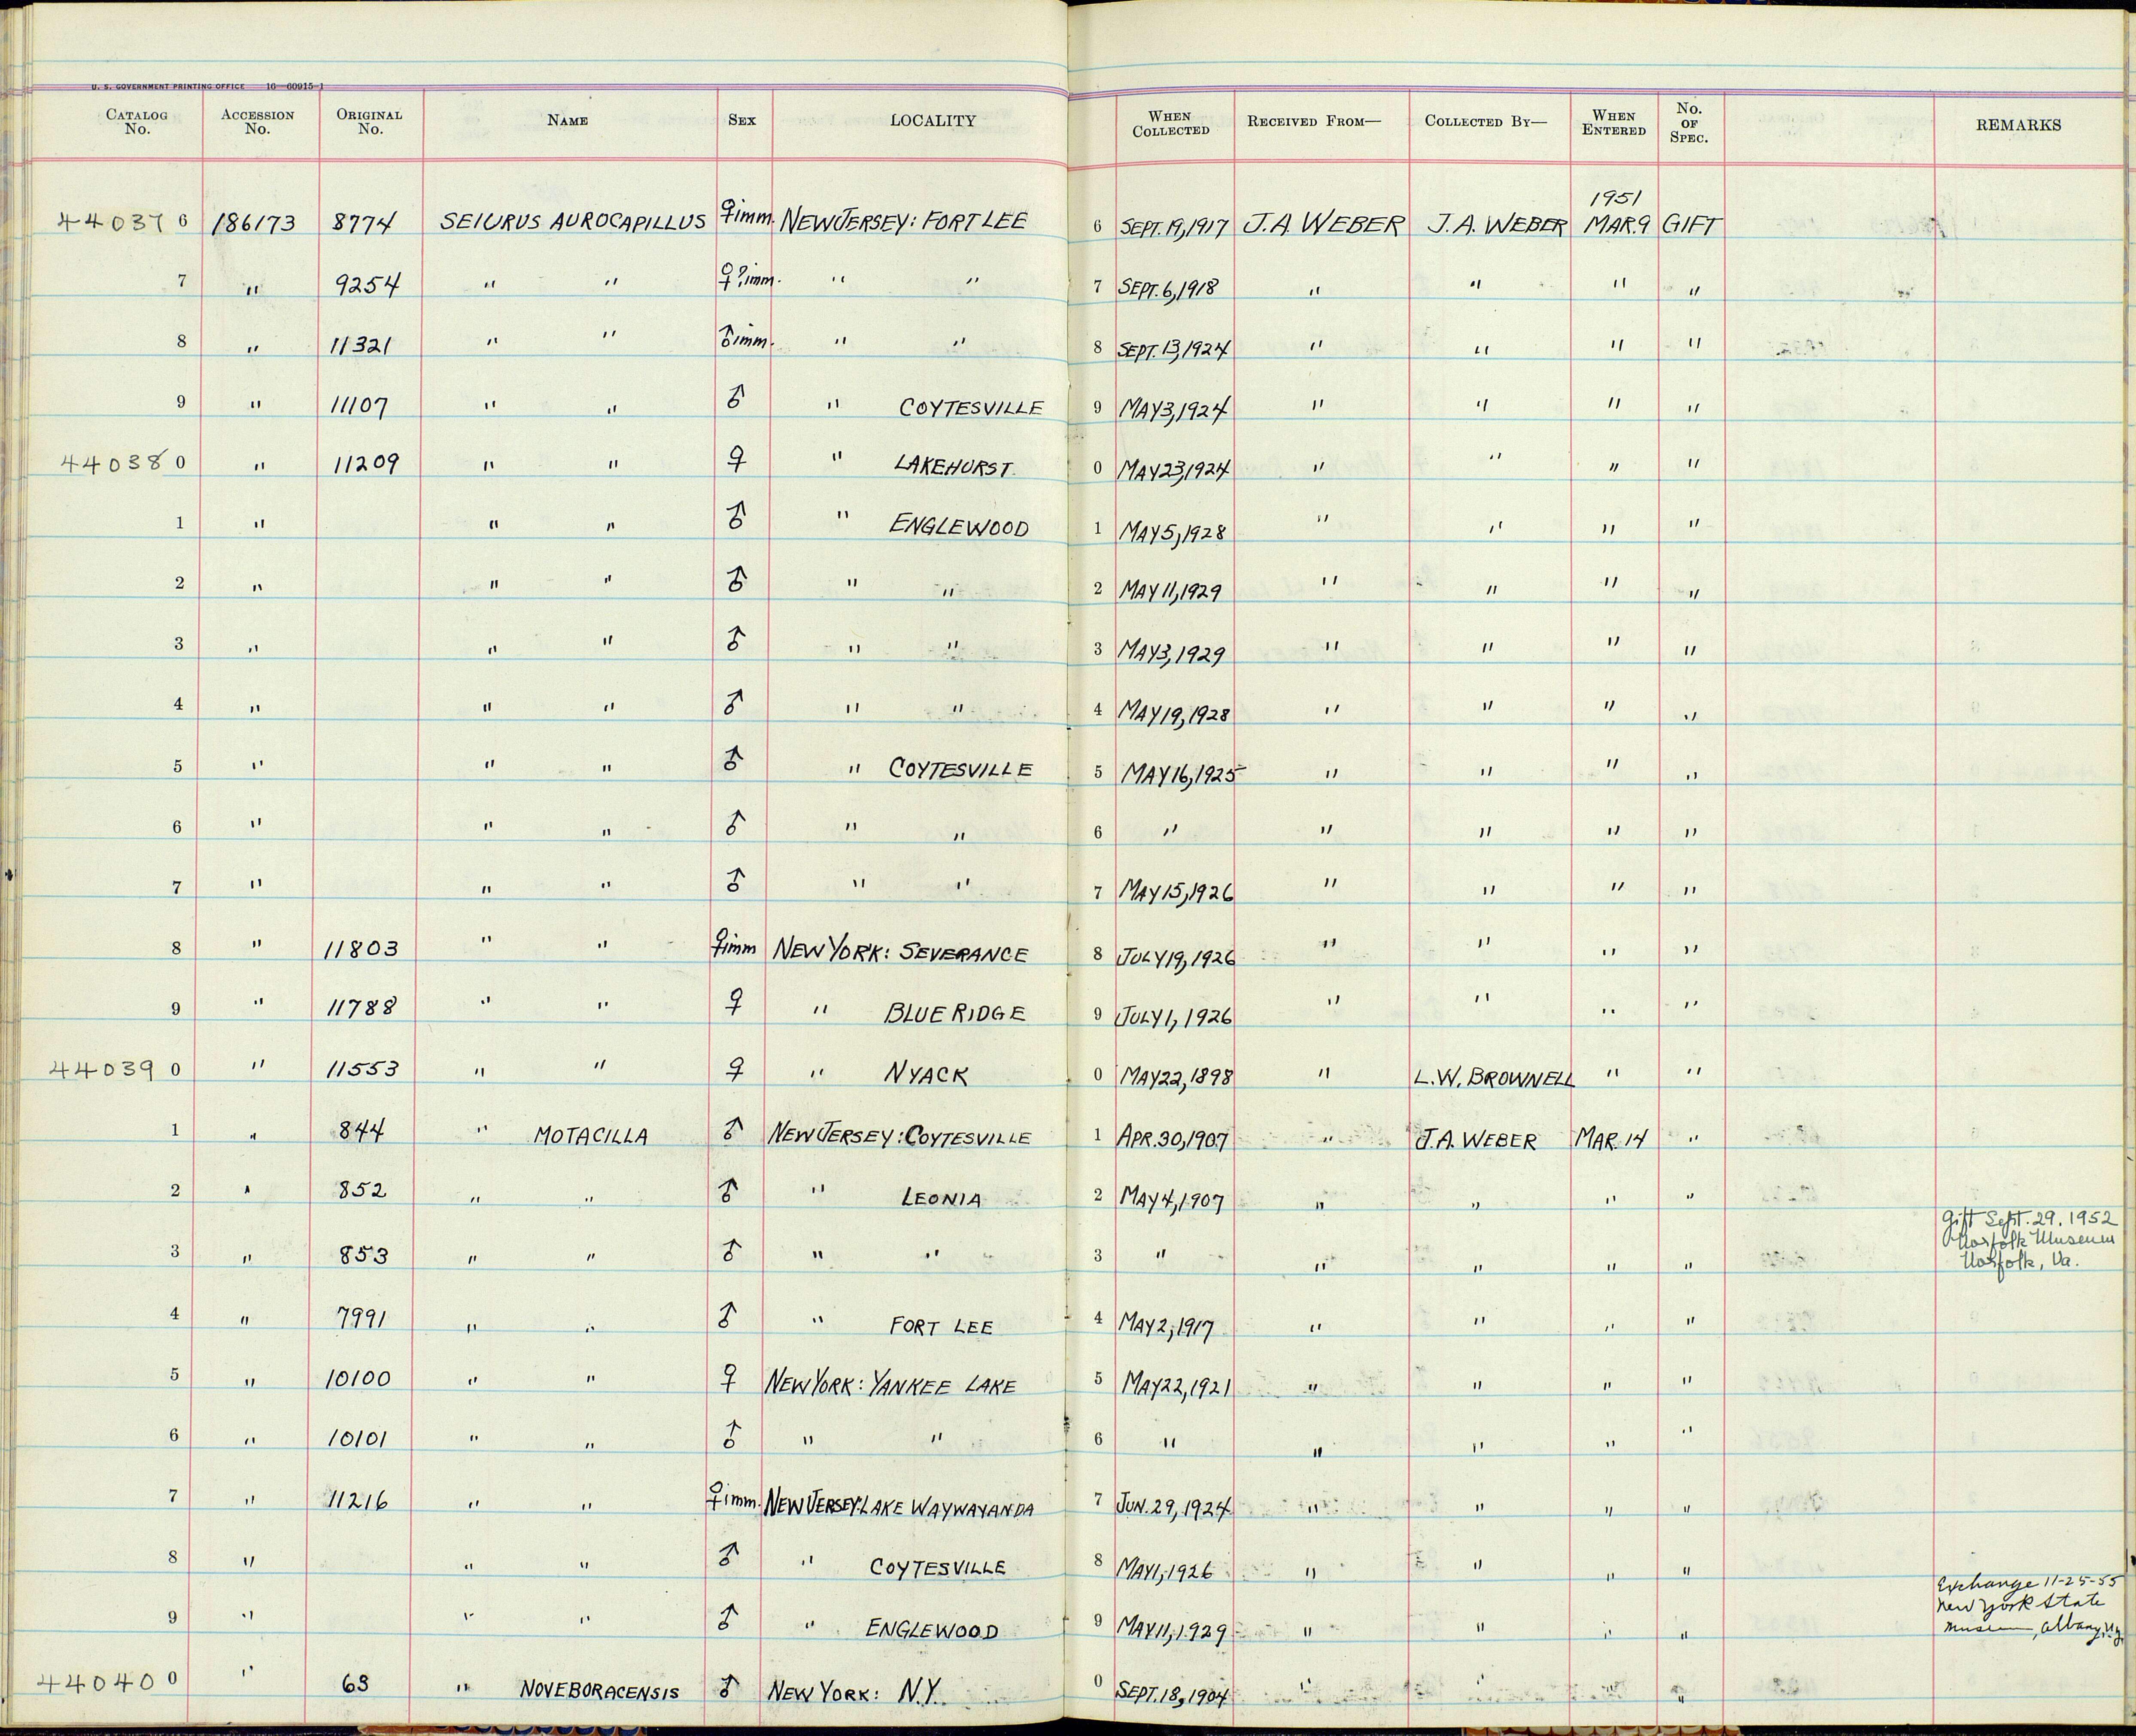 U. S. GOVERNMENT PRINTING OFFICE 16—60915-1
CATALOG No. ACCESSION No. ORIGINAL No. NAME SEX LOCALITY WHEN COLLECTED RECEIVED FROM— COLLECTED BY— WHEN ENTERED No. OF SPEC. REMARKS
1951
44037 6 186173 8774 SEIURUS AUROCAPILLUS ♀imm. NEW JERSEY: FORT LEE 6 SEPT. 19, 1917 J.A. WEBER J.A. WEBER MAR. 9 GIFT
7 " 9254 " " ♀?imm. " " 7 SEPT. 6, 1918 " " " "
8 " 11321 " " ♂imm. " " 8 SEPT. 13, 1924 " " " "
9 " 11107 " " ♂ " COYTESVILLE 9 MAY 3, 1924 " " " "
44038 0 " 11209 " " ♀ " LAKEHURST. 0 MAY 23, 1924 " " " "
1 " " " ♂ " ENGLEWOOD 1 MAY 5, 1928 " " " "
2 " " " ♂ " " 2 MAY 11, 1929 " " " "
3 " " " ♂ " " 3 MAY 3, 1929 " " " "
4 " " " ♂ " " 4 MAY 19, 1928 " " " "
5 " " " ♂ " COYTESVILLE 5 MAY 16, 1925 " " " "
6 " " " ♂ " " 6 " " " " "
7 " " " ♂ " " 7 MAY 15, 1926 " " " "
8 " 11803 " " ♀imm NEW YORK: SEVERANCE 8 JULY 19, 1926 " " " "
9 " 11788 " " ♀ " BLUE RIDGE 9 JULY 1, 1926 " " " "
44039 0 " 11553 " " ♀ " NYACK 0 MAY 22, 1898 " L.W. BROWNELL " "
1 " 844 " MOTACILLA ♂ NEW JERSEY: COYTESVILLE 1 APR. 30, 1907 " J.A. WEBER MAR. 14 "
2 " 852 " " ♂ " LEONIA 2 MAY 4, 1907 " " " "
3 " 853 " " ♂ " " 3 " " " " " Gift Sept. 29, 1952
Norfolk Museum
Norfolk, Va.
4 " 7991 " " ♂ " FORT LEE 4 MAY 2, 1917 " " " "
5 " 10100 " " ♀ NEW YORK: YANKEE LAKE 5 MAY 22, 1921 " " " "
6 " 10101 " " ♂ " " 6 " " " " "
7 " 11216 " " ♀imm. NEW JERSEY: LAKE WAYWAYANDA 7 JUN. 29, 1924 " " " "
8 " " " ♂ " COYTESVILLE 8 MAY 1, 1926 " " " "
9 " " " ♂ " ENGLEWOOD 9 MAY 11, 1929 " " " " Exchange 11-25-55
New York State
Museum, Albany, N.Y.
44040 0 " 63 " NOVEBORACENSIS ♂ NEW YORK: N.Y. 0 SEPT. 18, 1904 " " " "